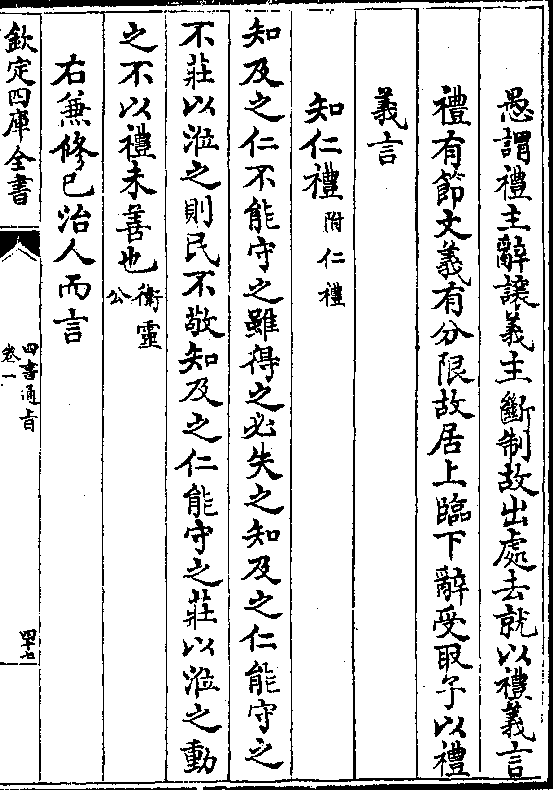 愚謂禮主辭讓義主斷制故出處去就以禮義言
禮有節文義有分限故居上臨下辭受取予以禮
義言
知仁禮附仁禮
知及之仁不能守之雖得之必失之知及之仁能守之
不莊以涖之則民不敬知及之仁能守之莊以涖之動
之不以禮未善也衛靈公
右兼修己治人而言
欽定四庫全書
四書通旨
卷一
四十七